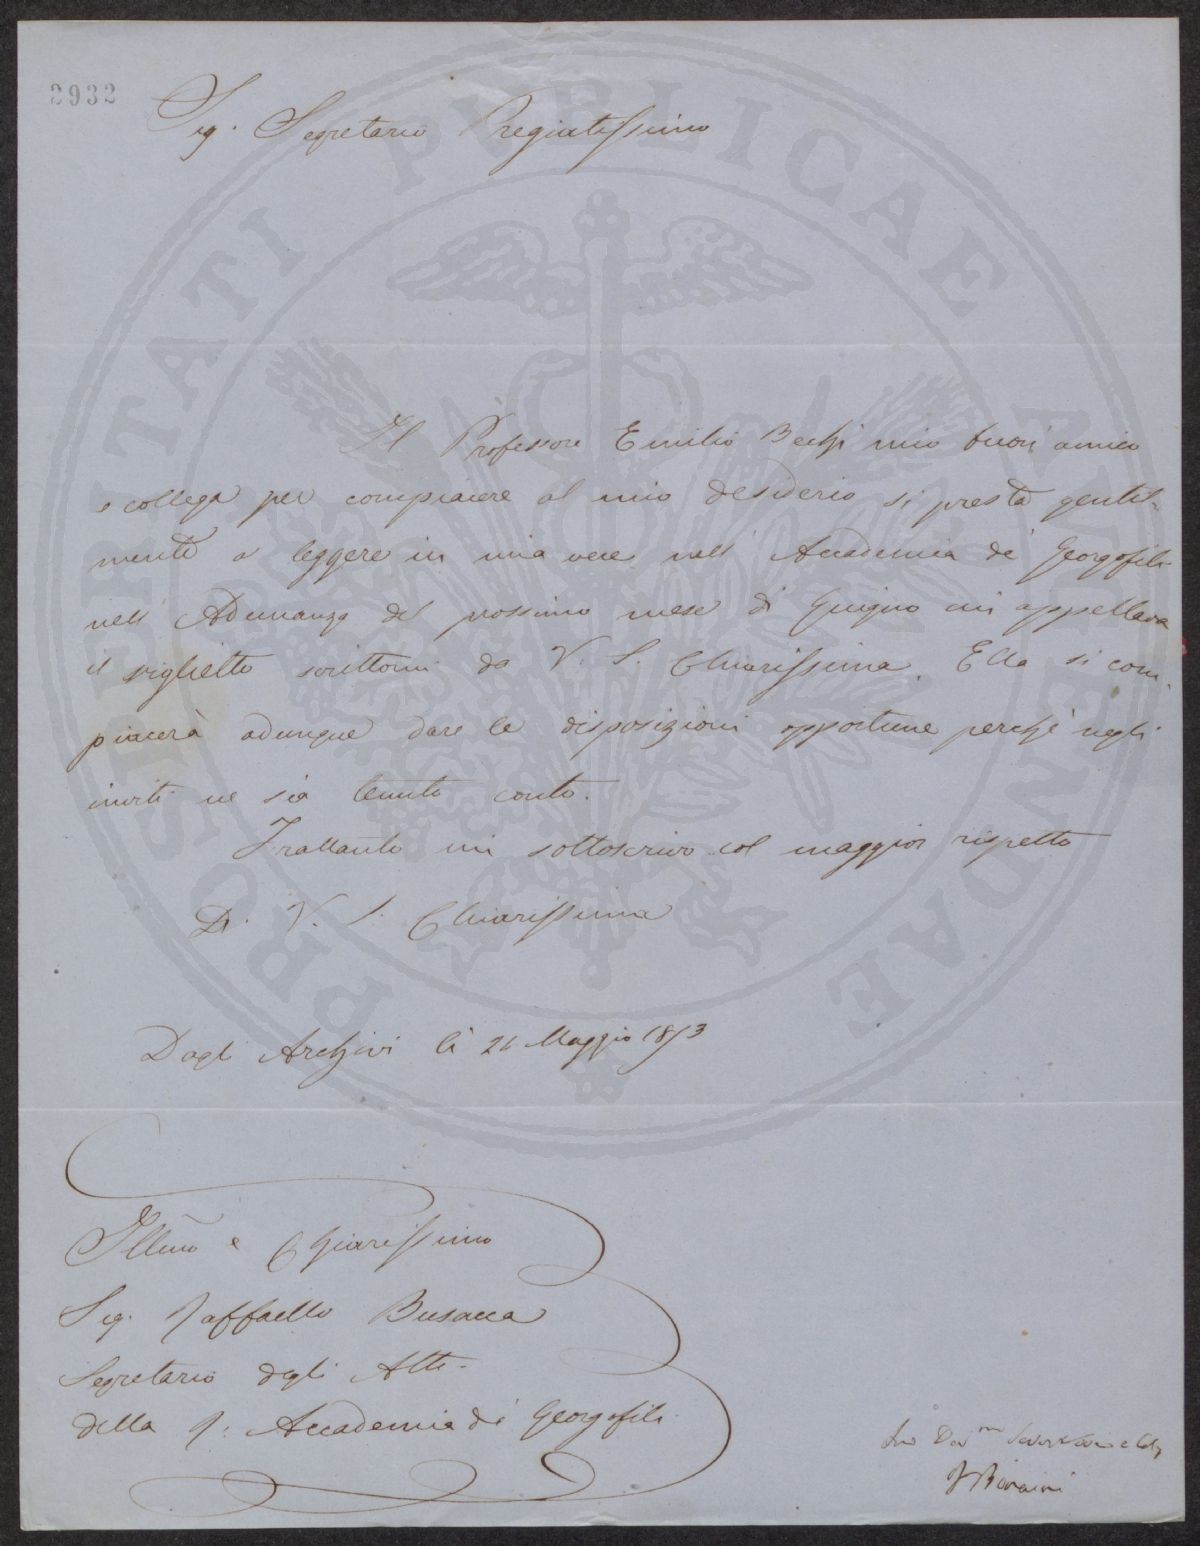 2932
Sig. Segretario Pregiatissimo
Il Professore Emilio Bechi mio buon amico
e collega per compiacere al mio desiderio si presta gentil-
mente a leggere in mia vece nell' Accademia de' Georgofili
nell' Adunanza del prossimo mese di Giugno cui appellava
il viglietto scrittomi da V. S. Chiarissima. Ella si com-
piacerà adunque dare le disposizioni opportune perchè negli
inviti ne sia tenuto conto.
Frattanto mi sottoscrivo col maggior rispetto
Di V. S. Chiarissima
Dagli Archivi lì 21 Maggio 1853
Illmo e Chiarissimo
Sig. Raffaello Busacca
Segretario degli Atti
della R. Accademia de' Georgofili
Dev
PROSPERITATI PUBLICAE AUGENDAE